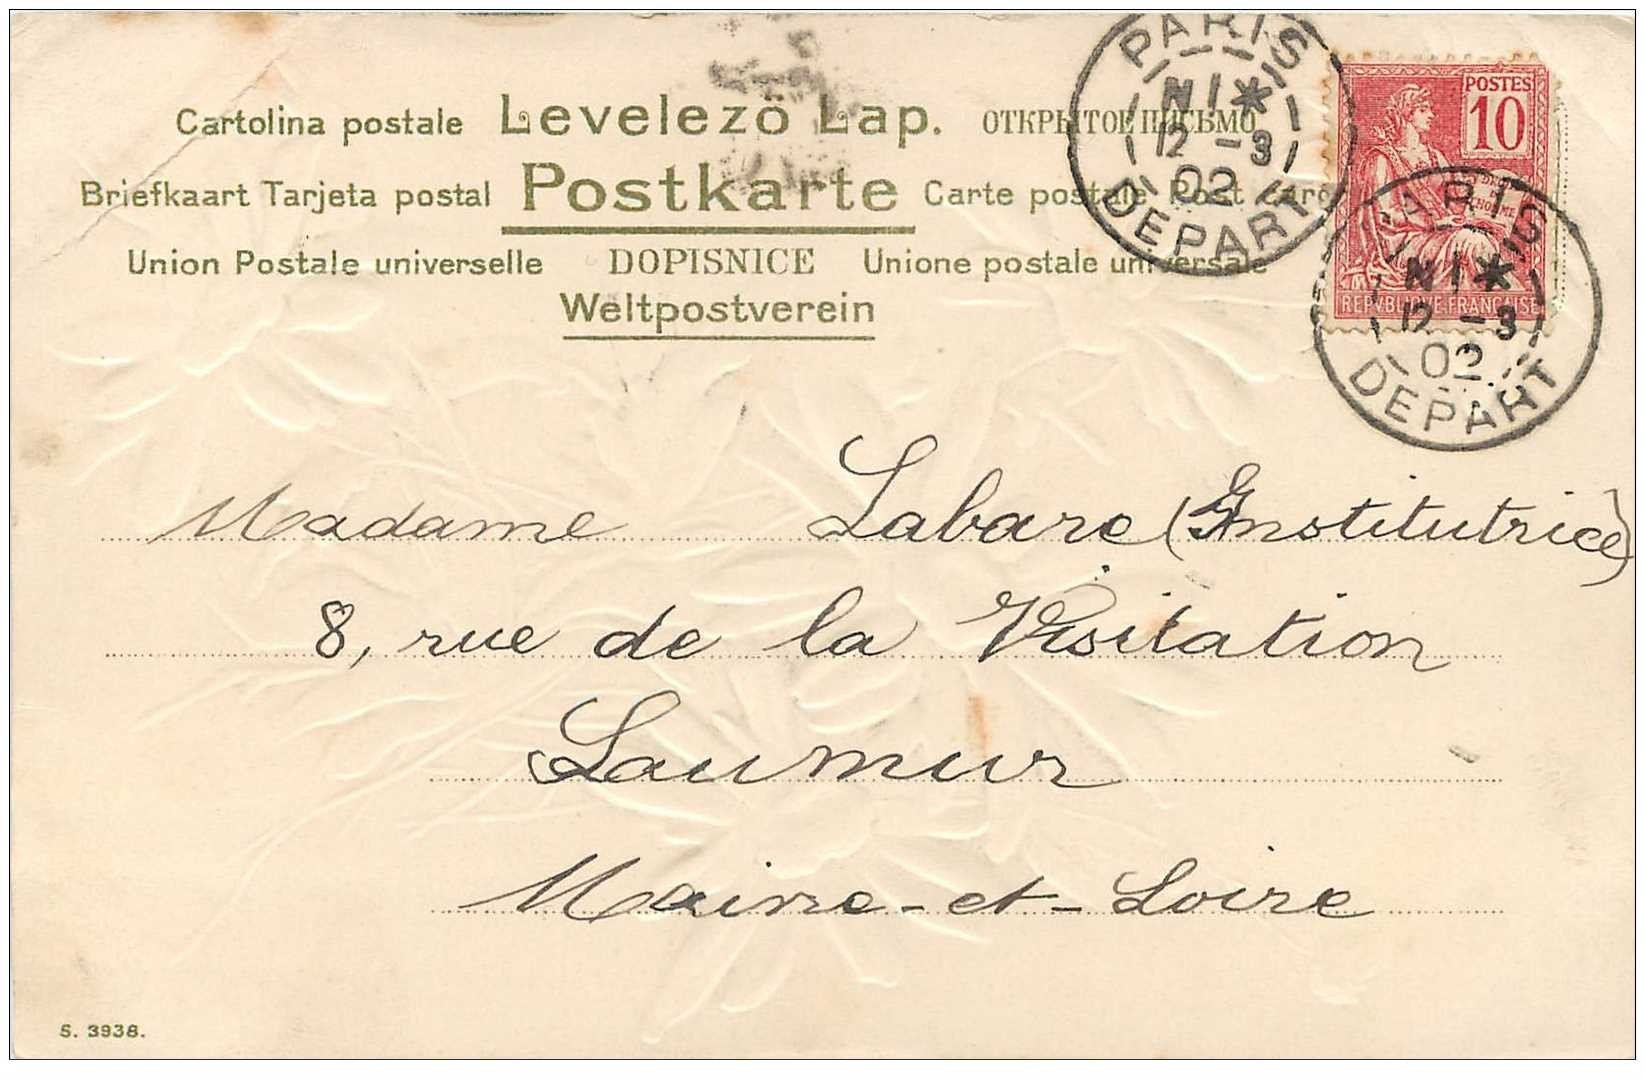 Cartolina postale Levelező Lap. ОТКРЫТОЕ ПИСЬМО
Briefkaart Tarjeta postal Postkarte Carte postale Post card
Union Postale universelle DOPISNICE Unione postale universale
Weltpostverein
PARIS
N 1 *
12 - 3
02
DEPART
POSTES
10
REPVBLIQVE FRANÇAISE
PARIS
N 1 *
12 - 3
02
DEPART
Madame Labare (Institutrice)
8, rue de la Visitation
Saumur
Maine-et-Loire
S. 3938.